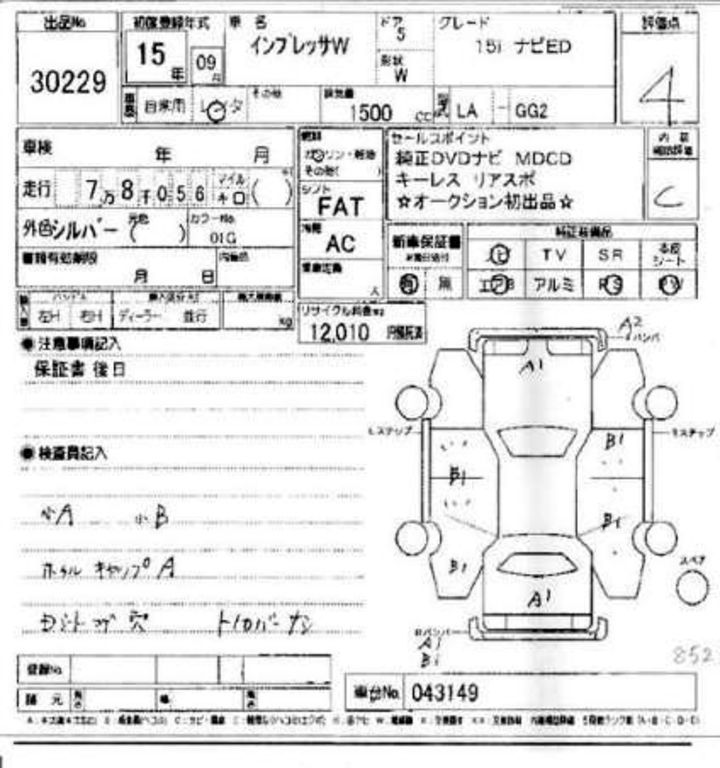 出品No. 初度登録年式 車名 ドア グレード 評価点
30229 15年 09月 インプレッサW 5 15i ナビED 4
形状 W
自家用 レンタ その他 排気量 1500 cc 型式 LA - GG2
車検 年 月
燃料 ガソリン・軽油 その他( )
セールスポイント 内装
純正DVDナビ MDCD C
キーレス リアスポ
☆オークション初出品☆
走行 7万8千056 マイル キロ ( )
シフト FAT
外色 シルバー 元色 ( ) カラーNo. 01G
冷房 AC
新車保証書 純正装備品
ナビ TV SR 本皮シート
有 無 エアB アルミ PS PW
書類有効期限 月 日 内装色
乗車定員 人
ハンドル
左H 右H ディーラー 並行 kg
リサイクル料金
12,010
●注意事項記入
保証書後日
●検査員記入
小A 小B
ホイルキャップA
セント コゲ 穴 トノカバーナシ
A2 バンパ
A1
Lステップ Rステップ
B1 B1
B1
B1
A1
スペア
Rバンパー
A1
B1
852
登録No.
諸元
車台No. 043149